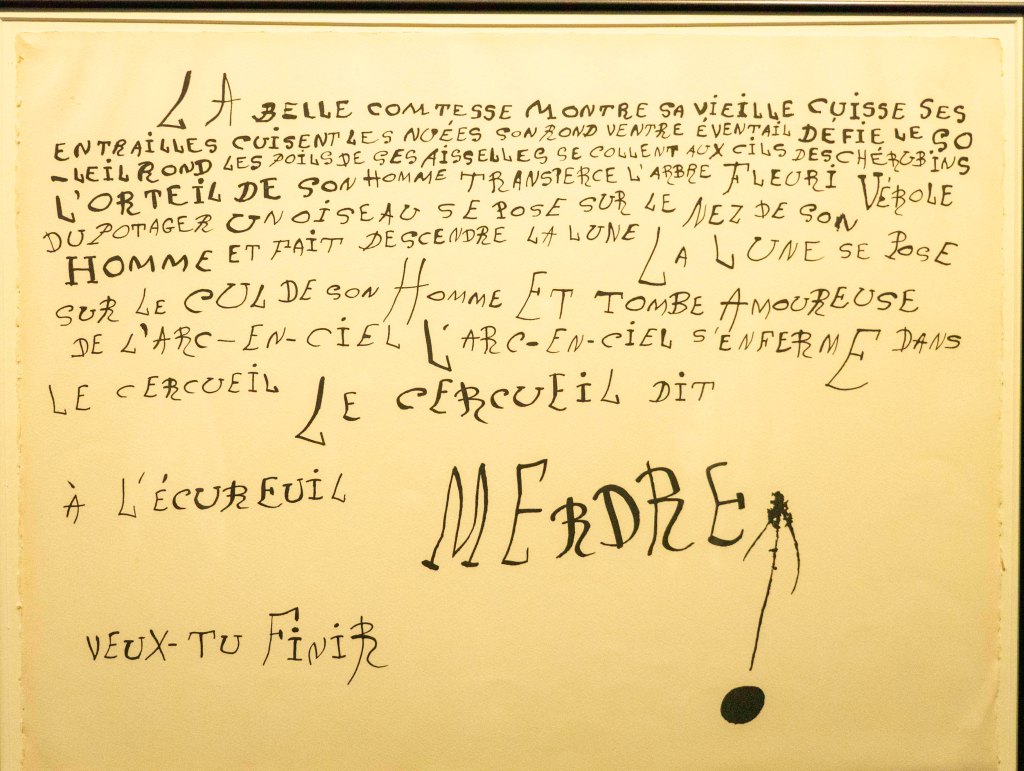 LA BELLE COMTESSE MONTRE SA VIEILLE CUISSE SES
ENTRAILLES CUISENT LES NUÉES SON ROND VENTRE ÉVENTAIL DÉFIE LE SO
-LEIL ROND LES POILS DE SES AISSELLES SE COLLENT AUX CILS DES CHÉRUBINS
L'ORTEIL DE SON HOMME TRANSPERCE L'ARBRE FLEURI VÉROLE
DU POTAGER UN OISEAU SE POSE SUR LE NEZ DE SON
HOMME ET FAIT DESCENDRE LA LUNE LA LUNE SE POSE
SUR LE CUL DE SON HOMME ET TOMBE AMOUREUSE
DE L'ARC-EN-CIEL L'ARC-EN-CIEL S'ENFERME DANS
LE CERCUEIL LE CERCUEIL DIT
À L'ÉCUREUIL MERDRE!
VEUX-TU FINIR